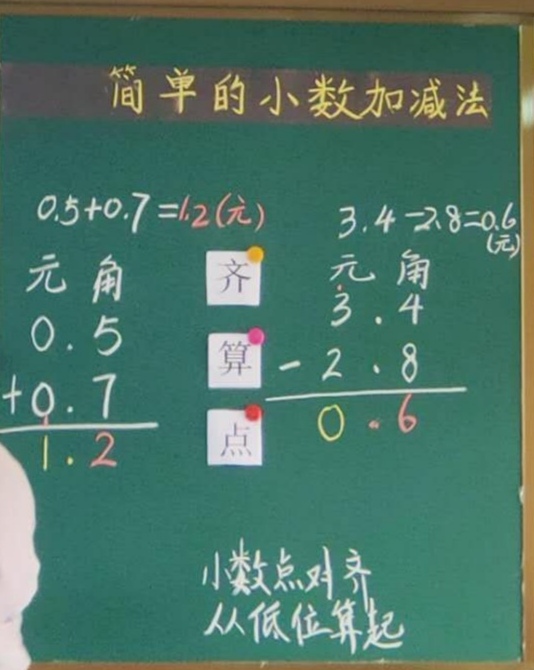 简单的小数加减法
0.5+0.7=1.2(元)
元 角
0.5
+0.7
1.2
齐
算
点
3.4-2.8=0.6
(元)
元 角
3.4
-2.8
0.6
小数点对齐
从低位算起